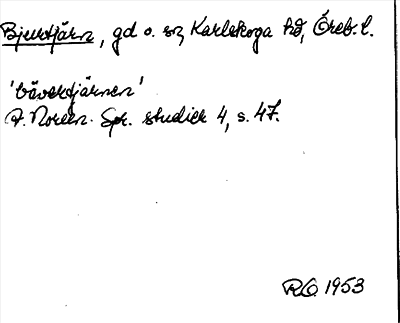 Bjurtjärn, gd o. sn, Karlskoga hd, Öreb. l.
'bävertjärnen'
A. Noreen. Spr. studier 4, s. 47.
RO. 1953